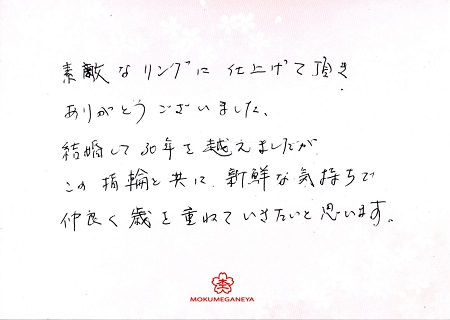 素敵なリングに仕上げて頂き
ありがとうございました、
結婚して30年を越えましたが
この指輪と共に、新鮮な気持ちで
仲良く歳を重ねていきたいと思います。
MOKUMEGANEYA